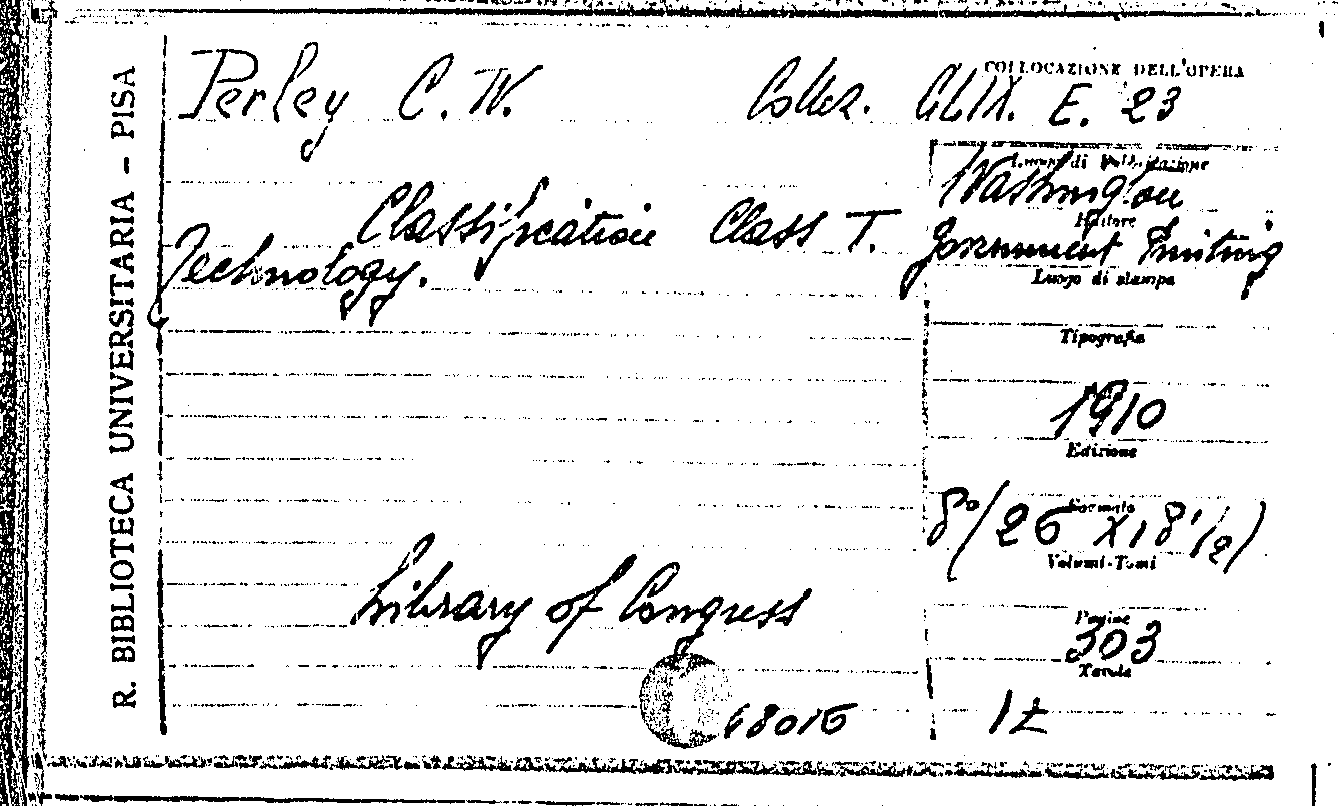 R. BIBLIOTECA UNIVERSITARIA - PISA
COLLOCAZIONE DELL'OPERA
Perley C. W. Collez. CLIX. E. 23
Luogo di Pubblicazione
Washington
Editore
Classification Class T. Government Printing
Technology.
Luogo di stampa
Tipografia
1910
Edizione
Formato
8°/26 x 18 1/2)
Volumi-Tomi
Library of Congress
Pagine
303
Tavole
68016